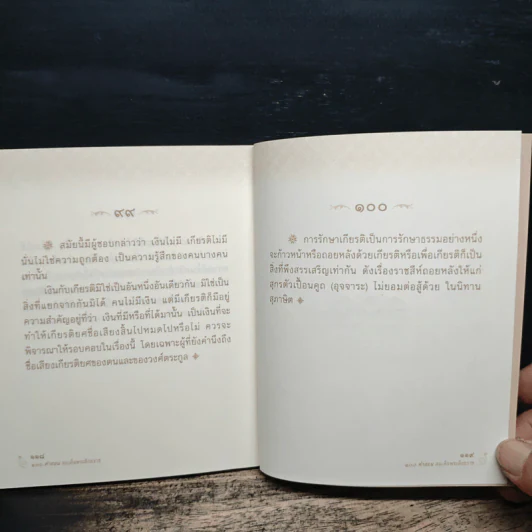 ๙๙
สมัยนี้มีผู้ชอบกล่าวว่า เงินไม่มี เกียรติไม่มี
นั่นไม่ใช่ความถูกต้อง เป็นความรู้สึกของคนบางคน
เท่านั้น
เงินกับเกียรติมิใช่เป็นอันหนึ่งอันเดียวกัน มิใช่เป็น
สิ่งที่แยกจากกันมิได้ คนไม่มีเงิน แต่มีเกียรติก็มีอยู่
ความสำคัญอยู่ที่ว่า เงินที่มีหรือที่ได้มานั้น เป็นเงินที่จะ
ทำให้เกียรติยศชื่อเสียงสิ้นไปหมดไปหรือไม่ ควรจะ
พิจารณาให้รอบคอบในเรื่องนี้ โดยเฉพาะผู้ที่ยังคำนึงถึง
ชื่อเสียงเกียรติยศของตนและของวงศ์ตระกูล
๑๑๘
๑๐๐
การรักษาเกียรติเป็นการรักษาธรรมอย่างหนึ่ง
จะก้าวหน้าหรือถอยหลังด้วยเกียรติหรือเพื่อเกียรติก็เป็น
สิ่งที่พึงสรรเสริญเท่ากัน ดังเรื่องราชสีห์ถอยหลังให้แก่
สุกรตัวเปื้อนคูถ (อุจจาระ) ไม่ยอมต่อสู้ด้วย ในนิทาน
สุภาษิต
๑๑๙